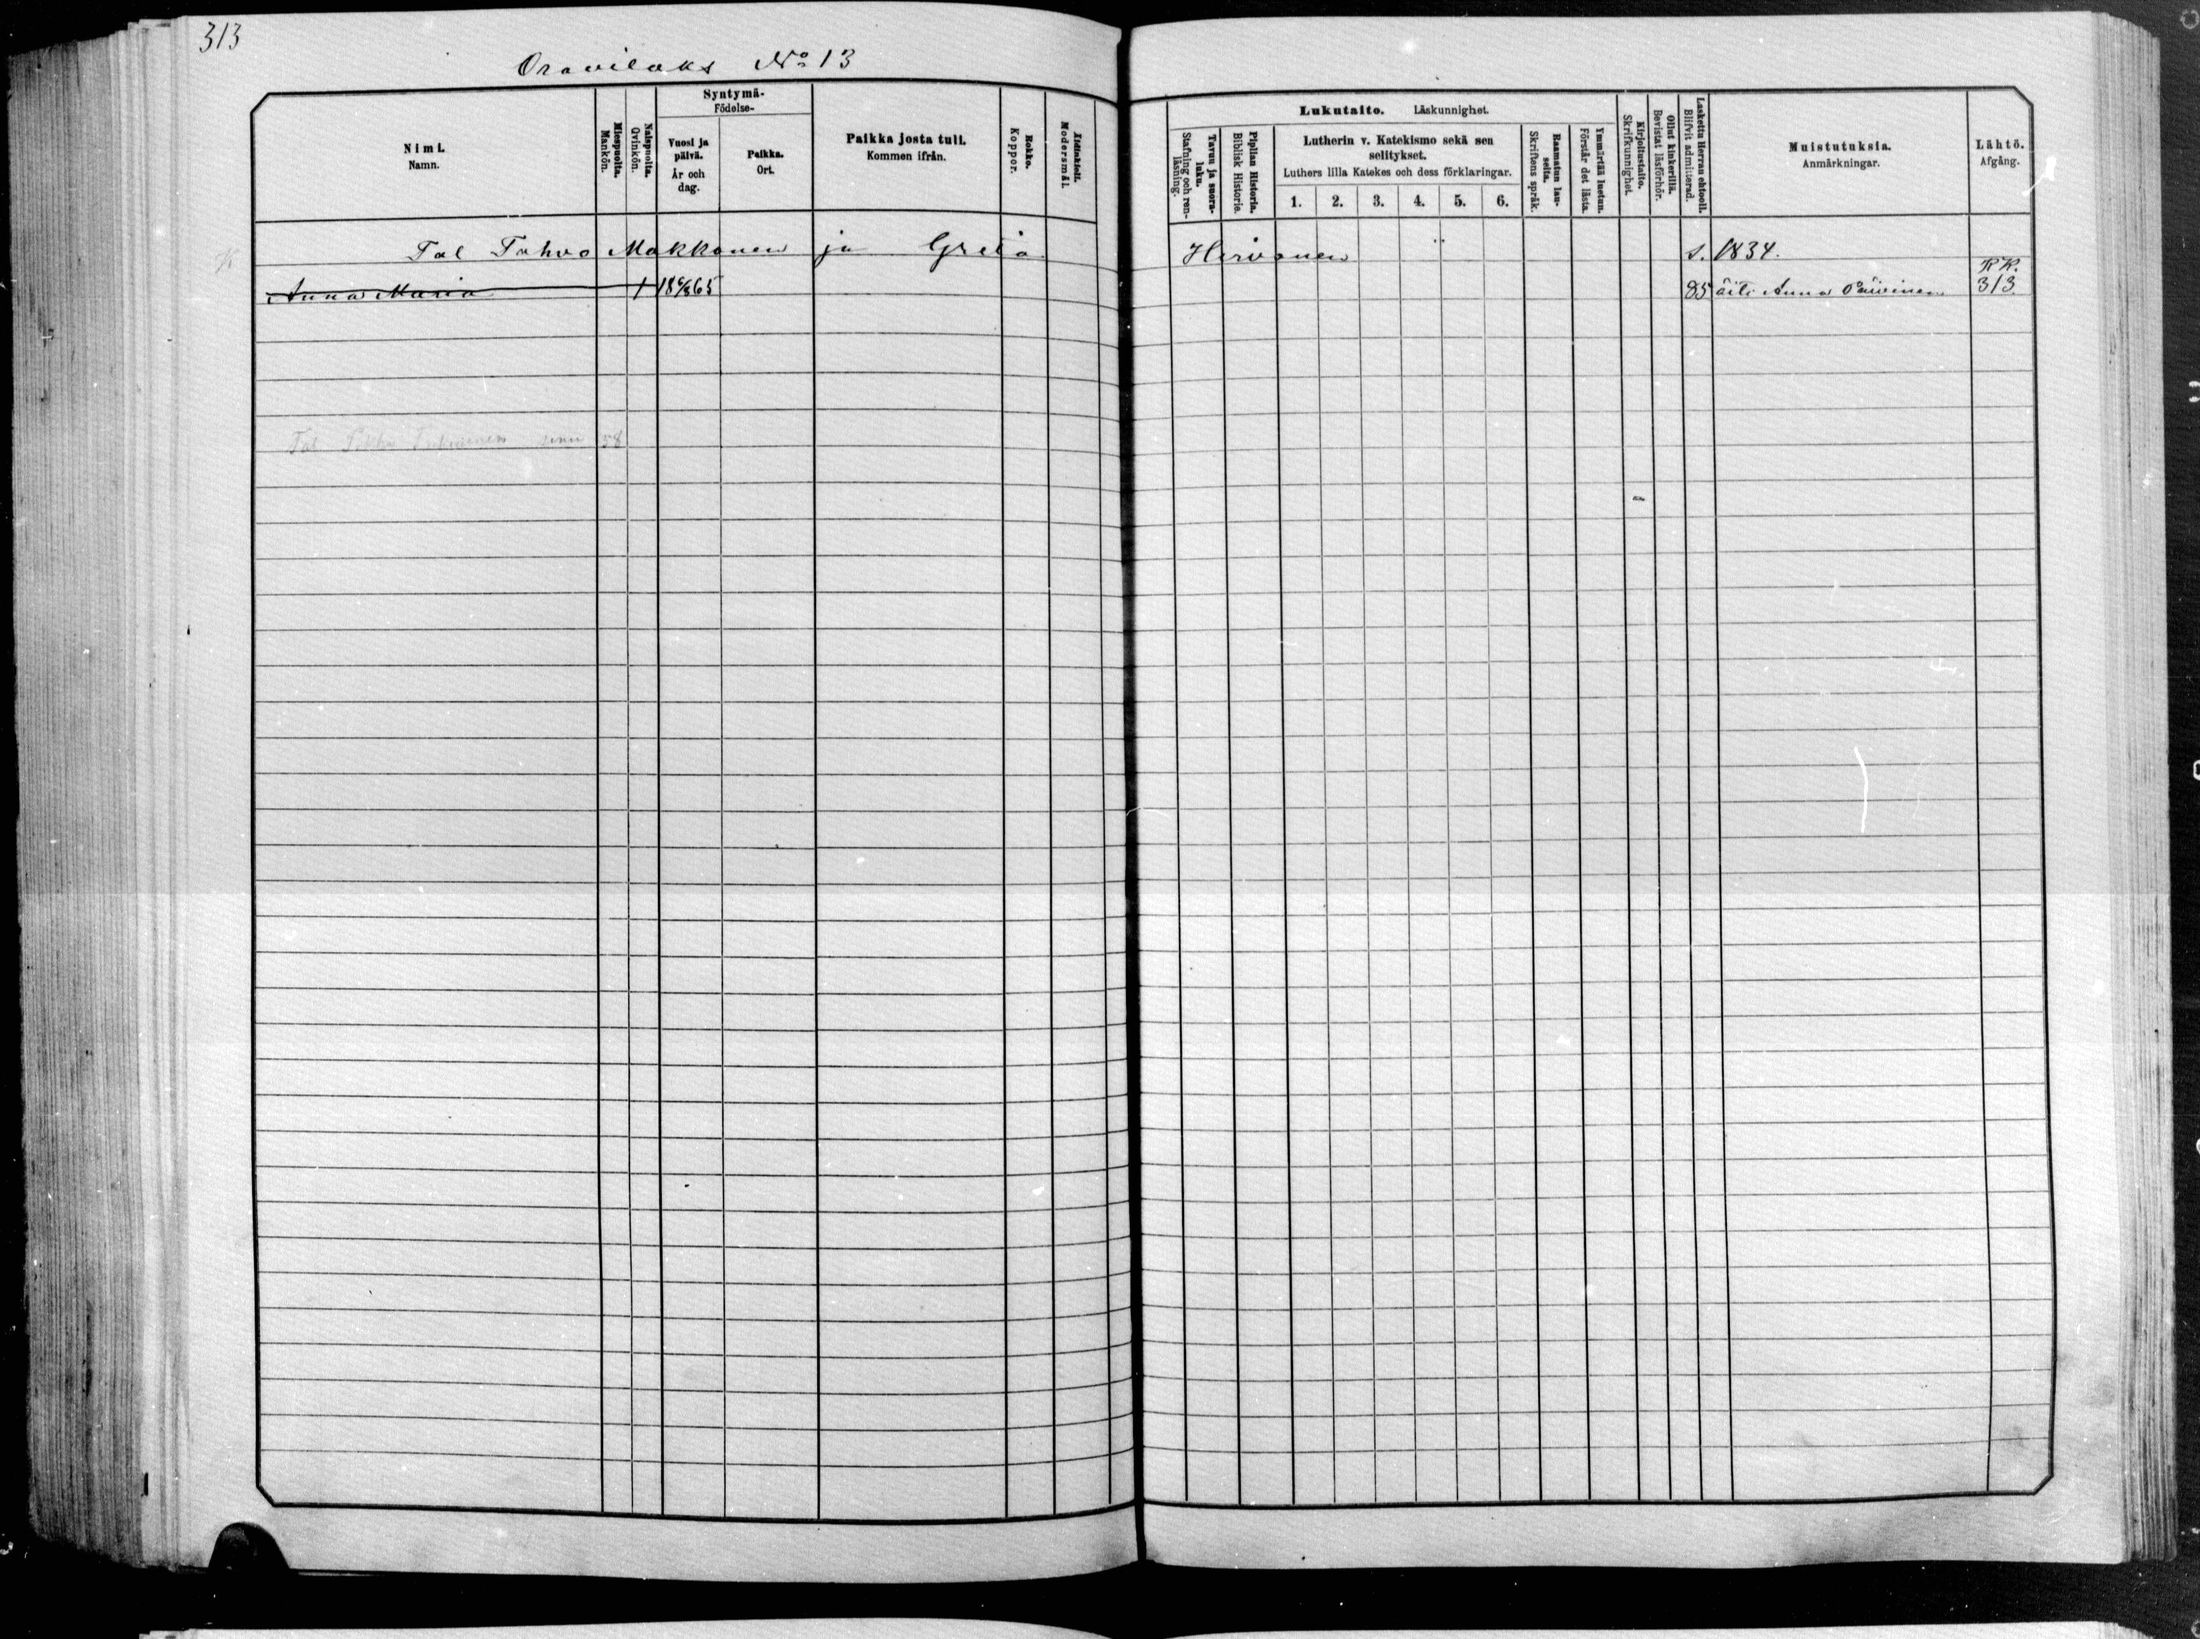 313
Oravilaks No 13
Nimi.
Namn.
Miespuolia.
Mankön.
Naispuolia.
Qvinkön.
Syntymä-
Födelse-
Vuosi ja
päivä.
År och
dag.
Paikka.
Ort.
Paikka josta tuli.
Kommen ifrån.
Rokko.
Koppor.
Äidinkieli.
Modersmål.
Lukutaito. Läskunnighet.
Tavuu ja suora-
luku.
Stafning och ren-
läsning.
Piplian Historia.
Biblisk Historie.
Lutherin v. Katekismo sekä sen
selitykset.
Luthers lilla Katekes och dess förklaringar.
1. 2. 3. 4. 5. 6.
Raamatun lau-
seita.
Skriftens språk.
Ymmärtää luetun.
Förstår det lästa.
Kirjoitustaito.
Skrifkunnighet.
Ollut kinkerillä.
Bevistat läsförhör.
Laskettu Herran ehtooll.
Blifvit admitterad.
Muistutuksia.
Anmärkningar.
Lähtö.
Afgång.
Tal Tahvo Makkonen ja Greta Hirvonen s. 1834.
Anna Maria 1 18 65 85 äiti Anna RK. 313
Tal Pekka 58